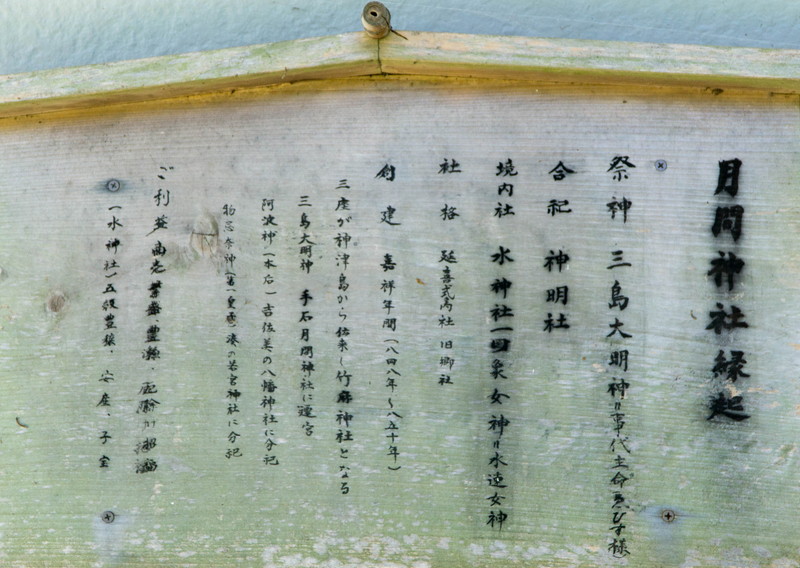 月間神社縁起
祭神 三島大明神=事代主命(ゑびす様)
合祀 神明社
境内社 水神社 女神=水速女神
社格 延喜式内社 旧郷社
創建 嘉祥年間(八四八年~八五十年)
三座が神津島から 竹麻神社となる
三島大明神 手石月間神社に遷宮
阿波神(本后)吉佐美の八幡神社に分祀
物忌奈神 湊の若宮神社に分祀
ご利益 商売繁昌 豊漁・
(水神社)五穀豊穣・安産・子宝